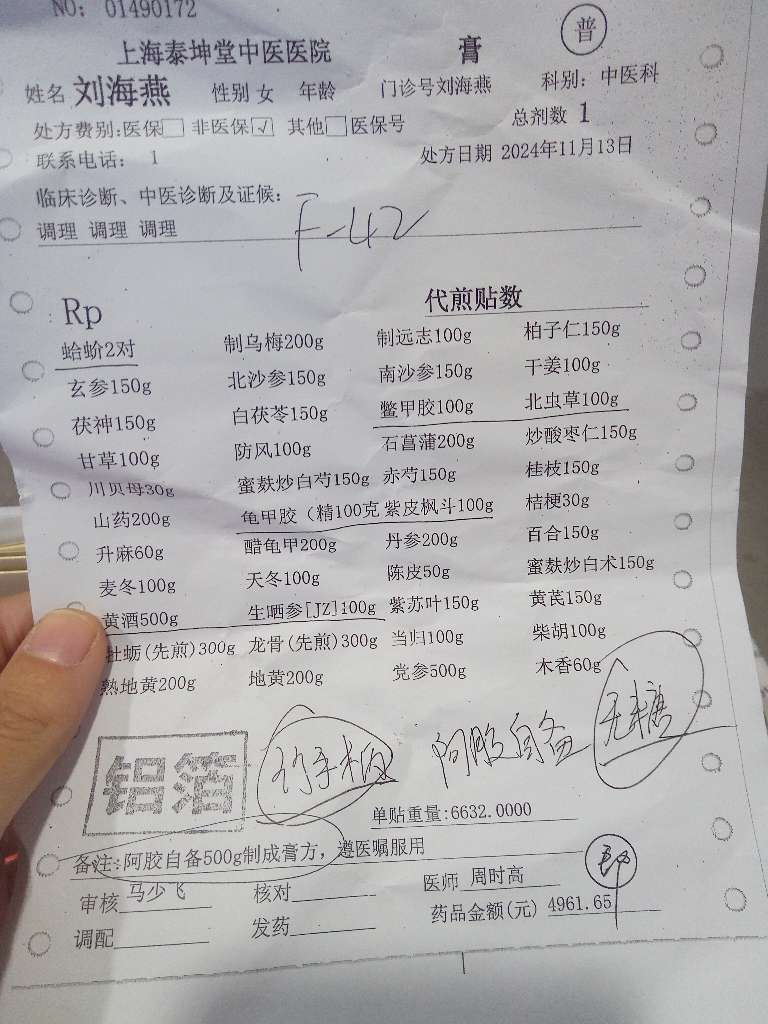 NO: 01490172
普
上海泰坤堂中医医院 膏
姓名 刘海燕 性别 女 年龄 门诊号刘海燕 科别: 中医科
处方费别:医保□ 非医保☑ 其他□ 医保号 总剂数 1
联系电话: 1 处方日期 2024年11月13日
临床诊断、中医诊断及证候:
调理 调理 调理
F-42
Rp 代煎贴数
蛤蚧2对 制乌梅200g 制远志100g 柏子仁150g
玄参150g 北沙参150g 南沙参150g 干姜100g
茯神150g 白茯苓150g 鳖甲胶100g 北虫草100g
甘草100g 防风100g 石菖蒲200g 炒酸枣仁150g
川贝母30g 蜜麸炒白芍150g 赤芍150g 桂枝150g
山药200g 龟甲胶（精100克 紫皮枫斗100g 桔梗30g
升麻60g 醋龟甲200g 丹参200g 百合150g
麦冬100g 天冬100g 陈皮50g 蜜麸炒白术150g
黄酒500g 生晒参[JZ]100g 紫苏叶150g 黄芪150g
牡蛎(先煎)300g 龙骨(先煎)300g 当归100g 柴胡100g
熟地黄200g 地黄200g 党参500g 木香60g
铝箔 阿胶自备 无糖
单贴重量:6632.0000
备注:阿胶自备500g制成膏方，遵医嘱服用
审核 马少飞 核对 医师 周时高
调配 发药 药品金额(元) 4961.65